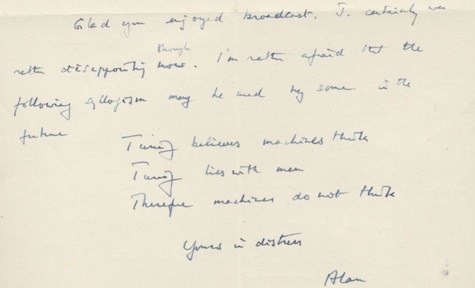 Glad you enjoyed broadcast. J. certainly was
rather disappointing though now. I'm rather afraid that the
following syllogism may be used by some in the
future
Turing believes machines think
Turing lies with men
Therefore machines do not think
Yours in distress
Alan